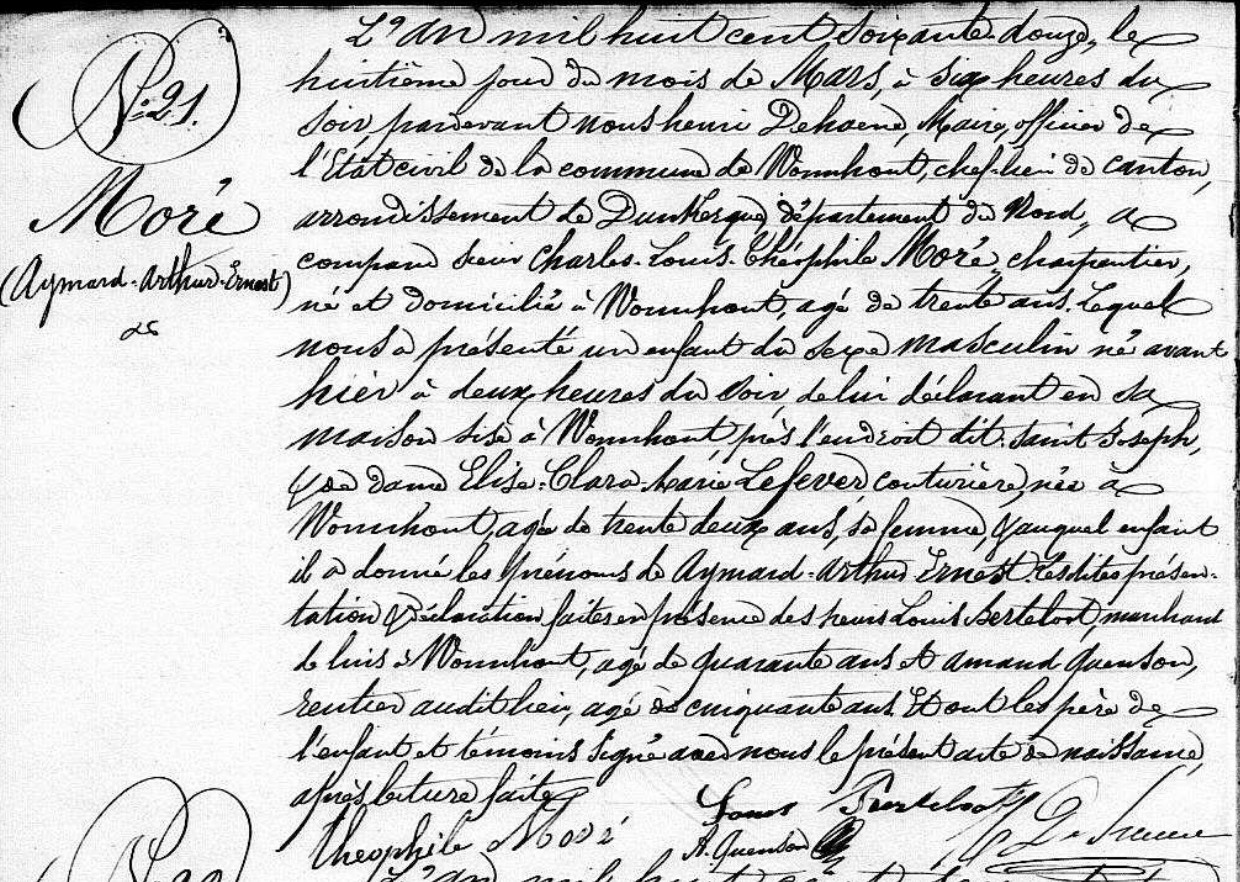 N° 21.
Moré
(Aymard-Arthur-Ernest)
L'an mil huit cent soixante-douze, le
huitième jour du mois de Mars, à six heures du
soir, pardevant nous henri Dehaene, Maire, officier de
l'Etat civil de la commune de Wormhout, chef-lieu de canton,
arrondissement de Dunkerque, département du Nord, a
comparu sieur Charles-Louis-Théophile Moré, charpentier,
né et domicilié à Wormhout, agé de trente ans. Lequel
nous a présenté un enfant du sexe masculin né avant
hier à deux heures du soir, de lui déclarant en sa
maison sise à Wormhout, près l'endroit dit: Saint Joseph,
& de dame Elise-Clara-Marie Lefever couturière, née à
Wormhout, agée de trente deux ans, sa femme, & auquel enfant
il a donné les prénoms de Aymard-Arthur Ernest. Lesdites présen-
tation & déclaration faites en présence des sieurs Louis Berteloot, marchand
de lins à Wormhout, agé de quarante ans et Amand Quenson,
rentier audit lieu, agé de cinquante ans. Et ont les père de
l'enfant et témoins signé avec nous le présent acte de naissance,
après lecture faite
Louis Berteloot
Théophile Moré
A. Quenson
L'an mil huit cent